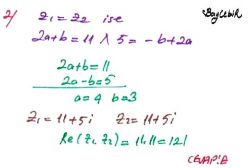 2) z₁ = z₂ ise
2a+b = 11 ∧ 5 = -b+2a
2a+b = 11
2a-b = 5
a=4 b=3
z₁ = 11+5i z₂ = 11+5i
Re(z₁, z₂) = 11.11 = 121
CEVAP:E